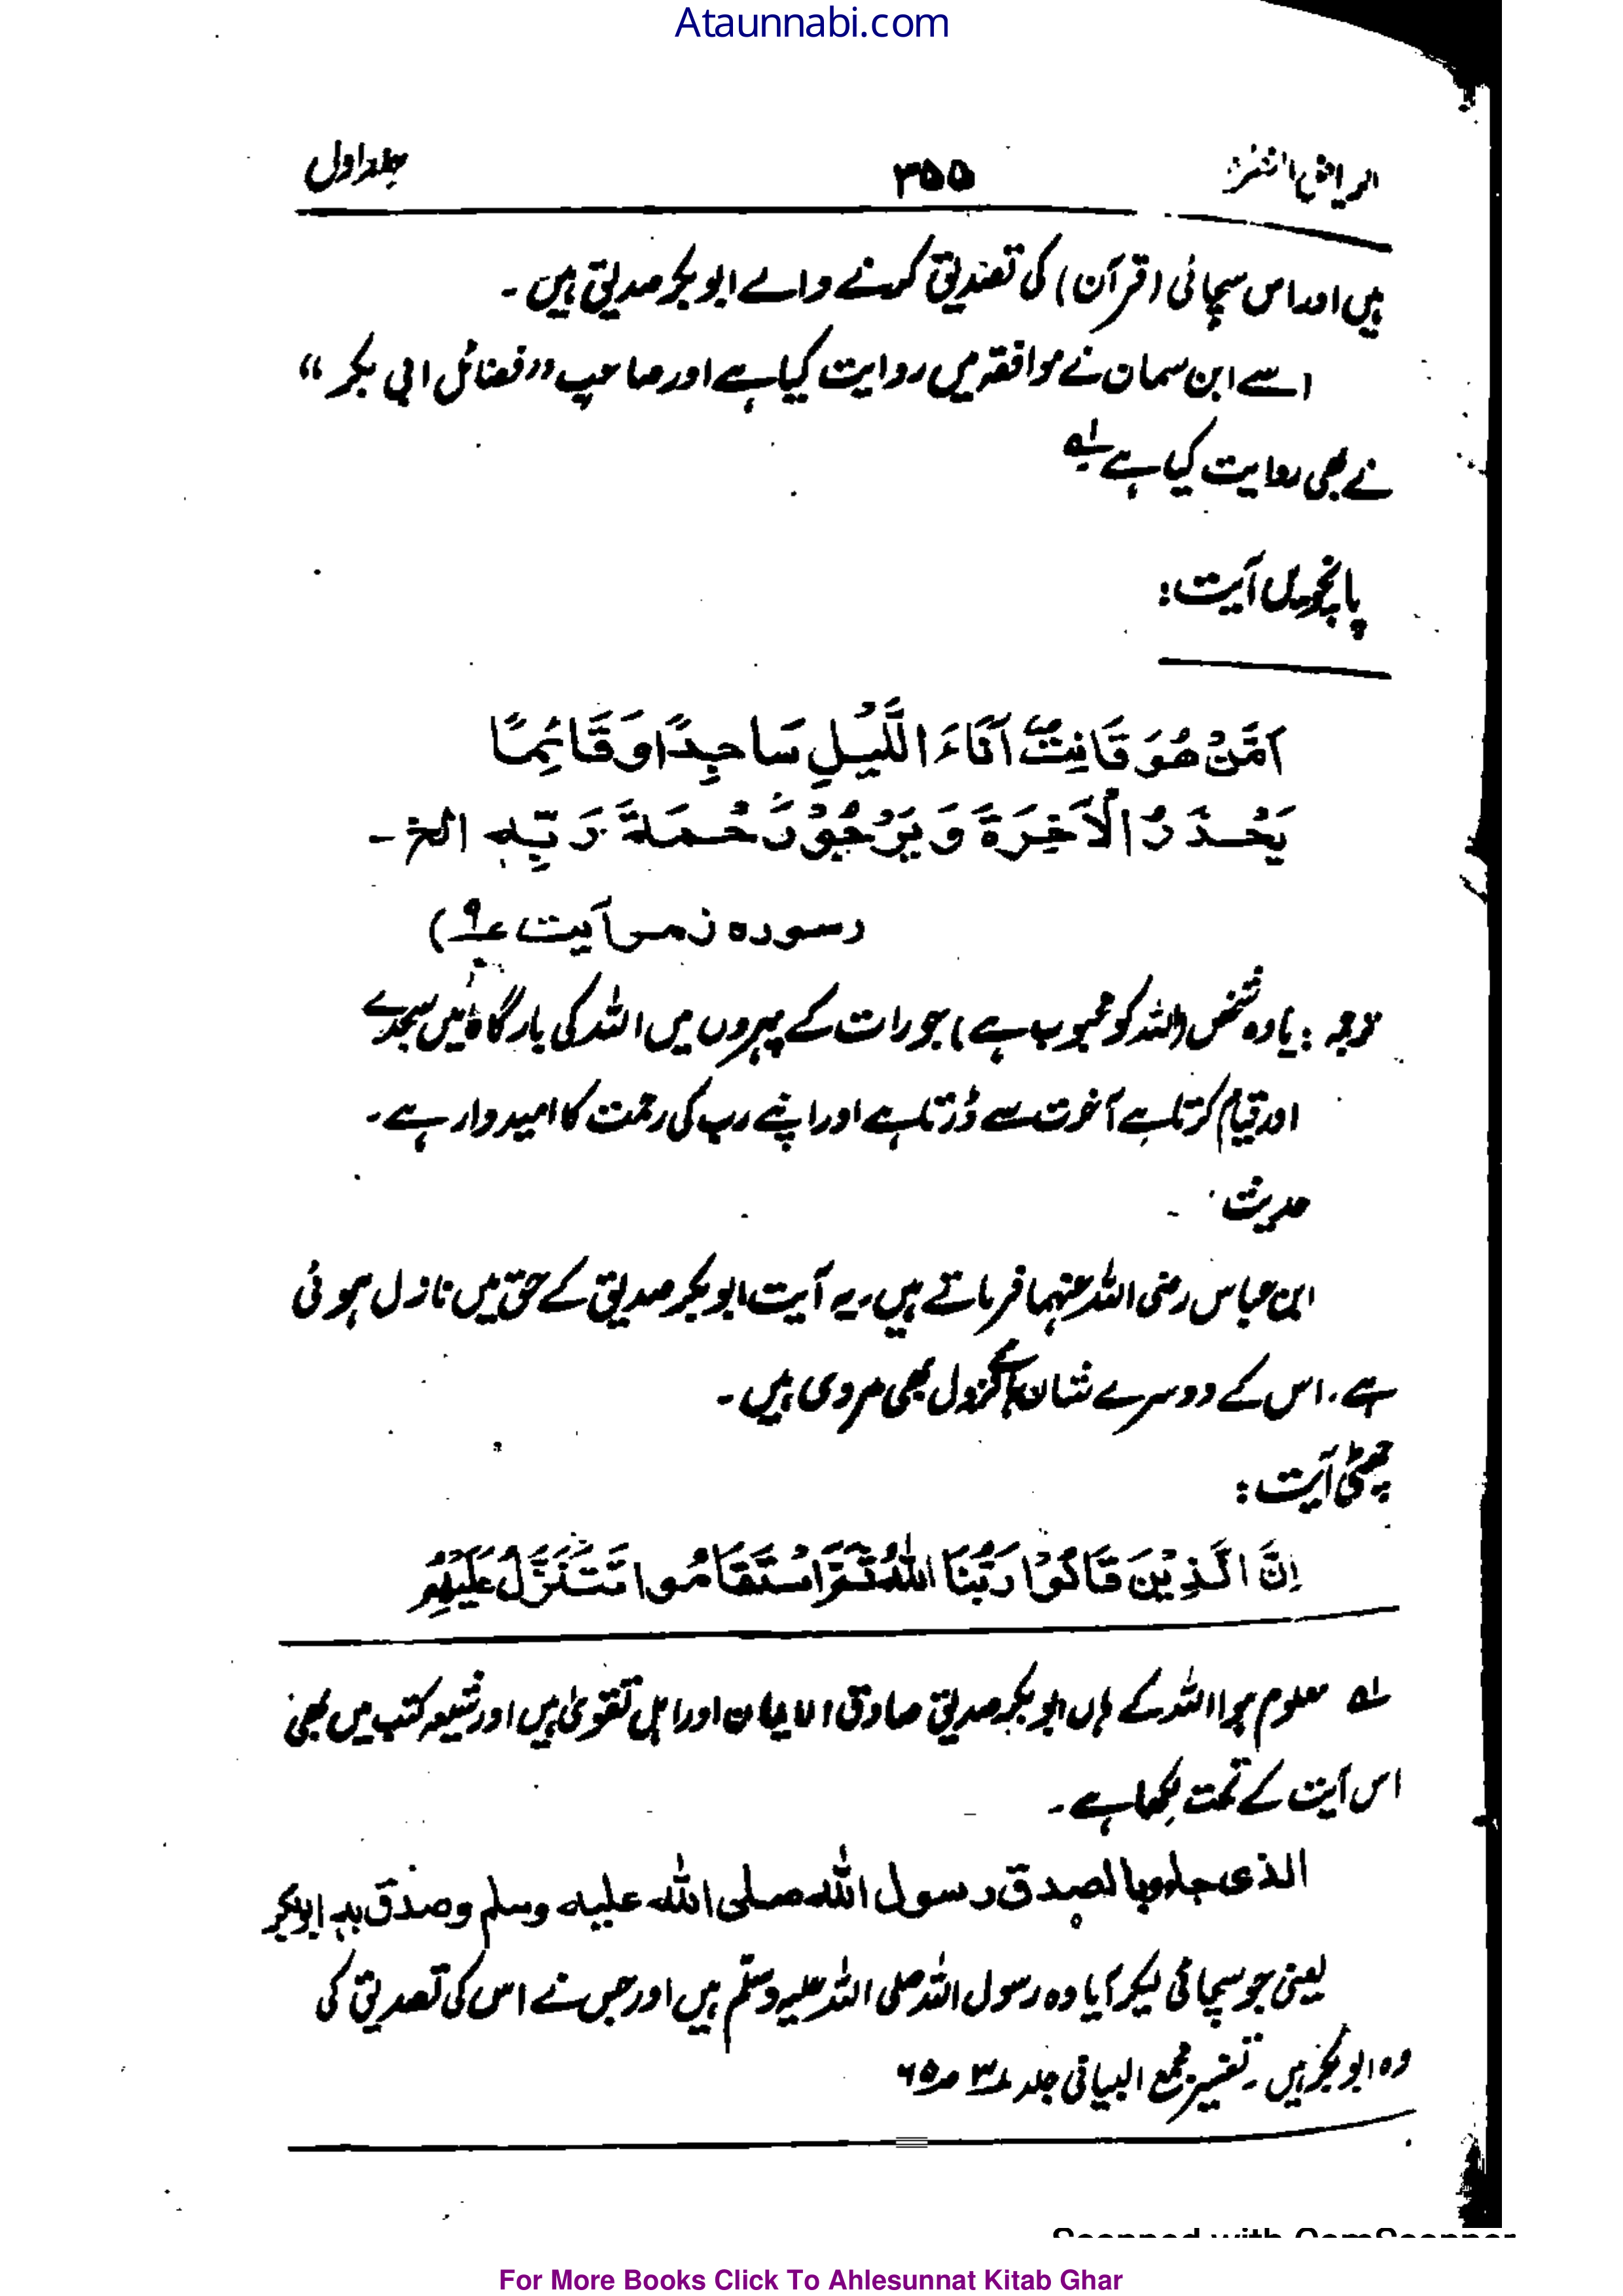 Ataunnabi.com
الریاض النضرۃ ۳۵۵ جلد اول
ہیں اور اس سچائی (قرآن) کی تصدیق کرنے والے ابوبکر صدیق ہیں۔
اسے ابن سمان نے موافقہ میں روایت کیا ہے اور صاحب ’’فضائل ابی بکر‘‘
نے بھی روایت کیا ہے لہ
پانچویں آیت:
اَمَّنْ هُوَ قَانِتٌ آنَاءَ الَّليْلِ سَاجِدًا وَ قَائِمًا
يَحْذَرُ الْآخِرَةَ وَ يَرْجُوْ رَحْمَةَ رَبِّهٖ الخ۔
(سورہ زمر آیت ۹)
ترجمہ: یا وہ شخص (اللہ کو محبوب ہے) جو رات کے پہروں میں اللہ کی بارگاہ میں سجدے
اور قیام کرتا ہے آخرت سے ڈرتا ہے اور اپنے رب کی رحمت کا امیدوار ہے۔
حدیث
ابن عباس رضی اللہ عنہما فرماتے ہیں۔ یہ آیت ابوبکر صدیق کے حق میں نازل ہوئی
ہے۔ اس کے دوسرے شان ہائے نزول بھی مروی ہیں۔
چھٹی آیت:
اِنَّ الَّذِيْنَ قَالُوْا رَبُّنَا اللهُ ثُمَّ اسْتَقَامُوا تَتَنَزَّلُ عَلَيْهِمُ
لہ معلوم ہوا اللہ کے ہاں ابوبکر صدیق صادق الایمان اور اہل تقویٰ ہیں اور شیعہ کتب میں بھی
اس آیت کے تحت لکھا ہے۔
الذی جاء بالصدق رسول اللہ صلی اللہ علیہ وسلم وصدق بہ ابوبکر
یعنی جو سچائی لیکر آیا وہ رسول اللہ صلی اللہ علیہ وسلم ہیں اور جس نے اس کی تصدیق کی
وہ ابوبکر ہیں۔ تفسیر مجمع البیان جلد ۳
Scanned with CamScanner
For More Books Click To Ahlesunnat Kitab Ghar